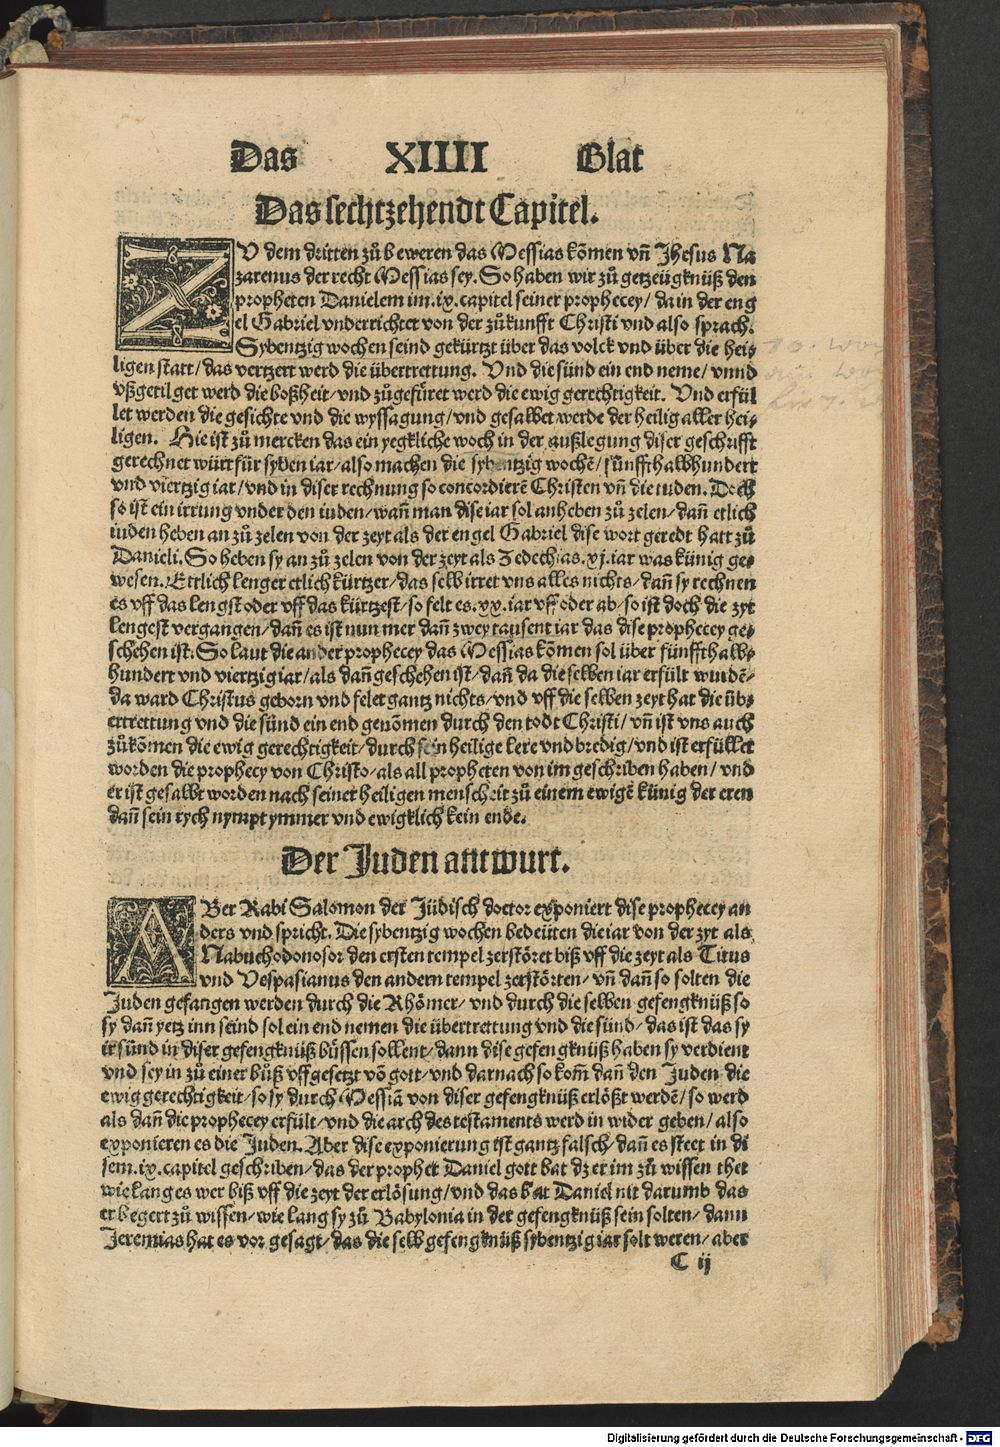 Das XIIII Blat
Das sechtzehendt Capitel.
ZV dem dritten zů beweren das Messias kõmen vñ Jhesus Na
zarenus der recht Messias sey. So haben wir zů getzeügknüß den
propheten Danielem im .ix. capitel seiner prophecey / da in der eng
el Gabriel vnderrichtet von der zůkunfft Christi vnd also sprach.
Sybentzig wochen seind gekürtzt über das volck vnd über die hei⸗
ligen statt / das vertzert werd die übertrettung. Vnd die sünd ein end neme / vnnd
vßgetilget werd die boßheit / vnd zůgefüret werd die ewig gerechtigkeit. Vnd erfül
let werden die gesichte vnd die wyssagung / vnd gesalbet werde der heilig aller hei⸗
ligen. Hie ist zů mercken das ein yegkliche woch in der außlegung diser geschrifft
gerechnet würt für syben iar / also machen die sybentzig wochẽ / fünffthalbhundert
vnd viertzig iar / vnd in diser rechnung so concordierẽ Christen vñ die iuden. Doch
so ist ein irrung vnder den iuden / wañ man dise iar sol anheben zů zelen / dañ etlich
iuden heben an zů zelen von der zeyt als der engel Gabriel dise wort geredt hatt zů
Danieli. So heben sy an zů zelen von der zeyt als Zedechias .xj. iar was künig ge⸗
wesen. Ettlich lenger etlich kürtzer / das selb irret vns alles nichts / dañ sy rechnen
es vff das lengst oder vff das kürtzest / so felt es .xx. iar vff oder ab / so ist doch die zyt
lengest vergangen / dañ es ist nun mer dañ zwey tausent iar das dise prophecey ge⸗
schehen ist. So laut die ander prophecey das Messias kõmen sol über fünffthalb⸗
hundert vnd viertzig iar / als dañ geschehen ist / dañ da die selben iar erfült wurdẽ /
da ward Christus geborn vnd felet gantz nichts / vnd vff die selben zeyt hat die üb⸗
ertrettung vnd die sünd ein end genõmen durch den todt Christi / vñ ist vns auch
zůkõmen die ewig gerechtigkeit / durch sein heilige lere vnd bredig / vnd ist erfüllet
worden die prophecy von Christo / als all propheten von im geschriben haben / vnd
er ist gesalbt worden nach seiner heiligen menscheit zů einem ewigẽ künig der eren
dañ sein rych nympt ymmer vnd ewigklich kein ende.
Der Juden antwurt.
ABer Rabi Salomon der Jüdisch doctor exponiert dise prophecey an
ders vnd spricht. Die sybentzig wochen bedeüten die iar von der zyt als
Nabuchodonosor den ersten tempel zerstöret biß vff die zeyt als Titus
vnd Vespasianus den andern tempel zerstörten / vñ dañ so solten die
Juden gefangen werden durch die Rhömer / vnd durch die selben gefengknüß so
sy dañ yetz inn seind sol ein end nemen die übertrettung vnd die sünd / das ist das sy
ir sünd in diser gefengknüß büssen sollent / dann dise gefengknüß haben sy verdient
vnd sey in zů einer bůß vffgesetzt võ gott / vnd darnach so kom̃ dañ den Juden die
ewig gerechtigkeit / so sy durch Messiã von diser gefengknüß erlößt werdẽ / so werd
als dañ die prophecey erfült / vnd die arch des testaments werd in wider geben / also
exponieren es die Juden. Aber dise exponierung ist gantz falsch / dañ es steet in di
sem .ix. capitel geschriben / das der prophet Daniel gott bat dz er im zů wissen thet
wie lang es wer biß vff die zeyt der erlösung / vnd das bat Daniel nit darumb das
er begert zů wissen / wie lang sy zů Babylonia in der gefengknüß sein solten / dann
Jeremias hat es vor gesagt / das die selb gefengknüß sybentzig iar solt weren / aber
C ij
Digitalisierung gefördert durch die Deutsche Forschungsgemeinschaft - DFG